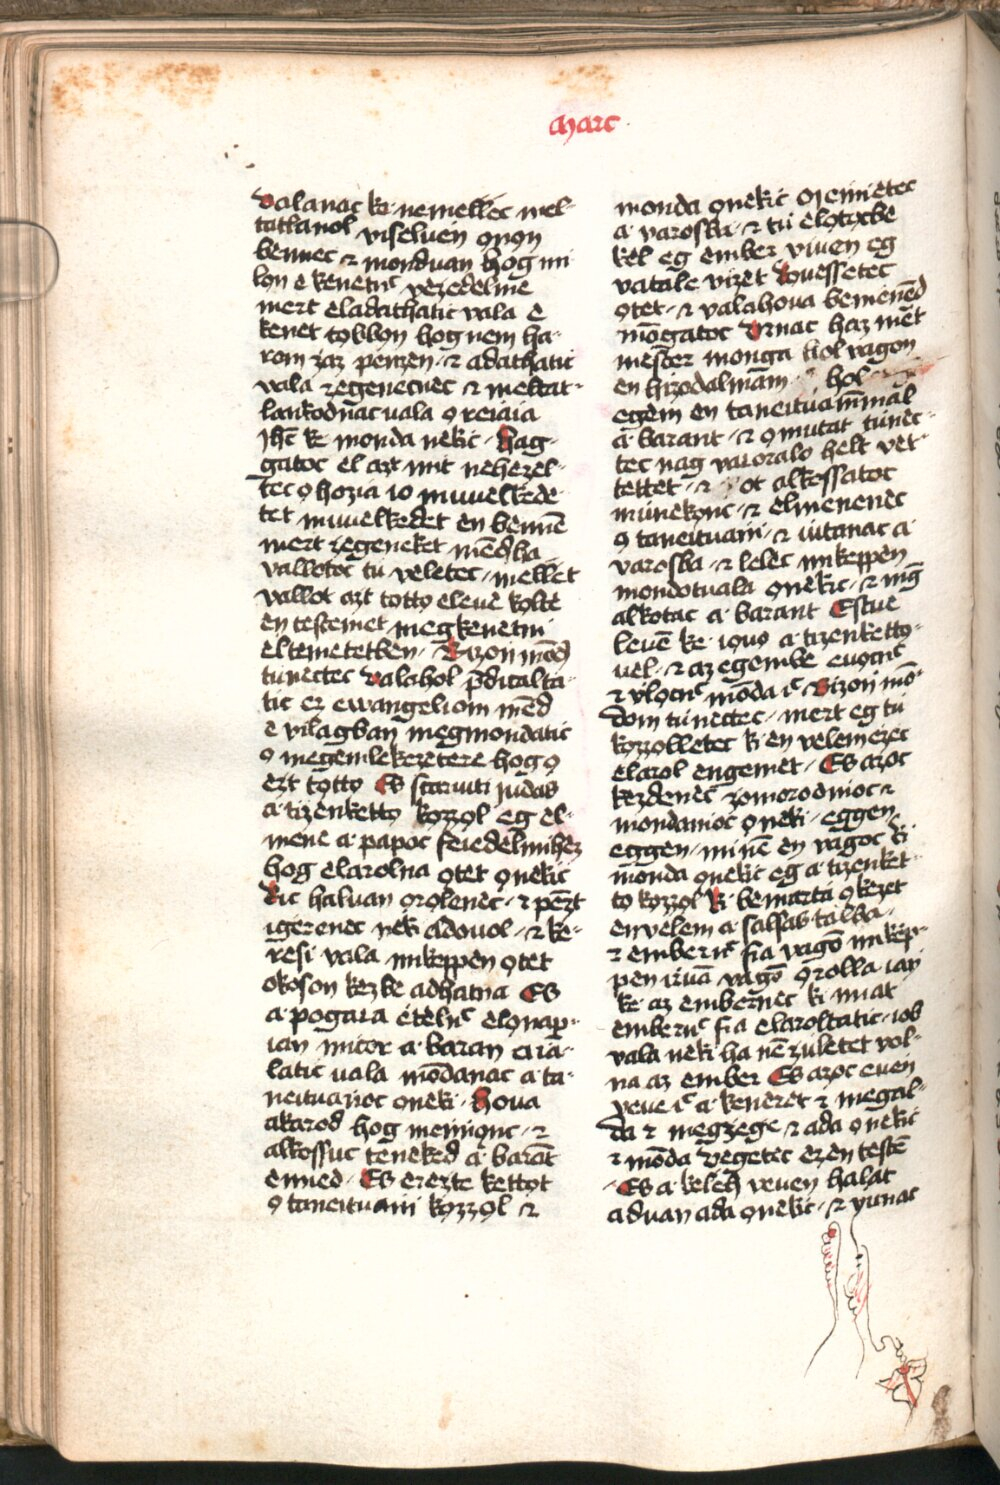 Marc
valanac kic nemellec mel-
tatlanol viseluen ọnọn
bennec ⁊ monduan hog mi-
lon e kenetnc̄ vezedelme
mert eladathatic vala e
kenet tobbọn hog nem ha-
rom zaz penzen ⁊ adathatic
vala zegenecnec ⁊ meltat-
lankodnac uala ọ reiaia
Jhc̄ kē monda nekic hag-
gatoc el azt mit nehezel-
tec ọ hozia io miuelkede-
tet miuelkedet en bennē
mert zegeneket mēdẹha
vallotoc tu veletec mellet
vallot azt totto eleue kolte
en testemet megkenetni
eltemetetben Bizon mōdō
tunectec valahol p̄dicalta-
tic ez ewangeliom mēd
e vilagban megmondatic
ọ megemlekezetere hog ọ
ezt totto Es scarioti iudas
a tizenketto kọzzọl eg el-
mene a papoc feiedelmihez
hog elarolna ọtet ọnekic
kic haluan ọrọlenec ⁊ pēzt
igerenec neki adouol ⁊ ke-
resi vala mikeppen ọtet
okoson kezbe adhatna Es
a pogaia ētēlnc̄ elọ nap-
ian micor a baran aia-
latic uala mōdanac a ta-
neituanoc ọneki houa
akarod hog mennọnc ⁊
alkossuc teneked a barāt
enned Es erezte kettọt
ọ taneituani kọzzọl ⁊
monda ọnekic Menietec
a varosba ⁊ tu elọtọcbe
kel eg ember viuen eg
vatale vizet kouessetec
ọtet ⁊ valahoua bemenēd
mōgatoc vrnac haz mēt
mester monga hol vagon
en hizodalmam hol
egem en taneituaimmal
a barant ⁊ ọ mutat tunec-
tec nag vaioralo helt vet-
tettet ⁊ ot alkossatoc
munekọnc ⁊ elmenenec
ọ taneituani ⁊ iutanac a
varosba ⁊ lelec mikeppen
mondotuala ọnekic ⁊ mḡ
alkotac a barant Estue
leuē ke iọuọ a tizenketto-
uel ⁊ az egembe euọcnc̄
⁊ vlọcnc̄ mōda ic̄ Bizon mō-
dom tunectec mert eg tu
kọzzọlletec ki en velem ezec
elarol engemet Es azoc
kezdenec zomorodnioc ⁊
mondanioc ọneki eggen
eggen minē en vagoc ki
monda ọnekic eg a tizenket-
to kọzzọl ki bemarta ọ kezet
en velem a salsas talba
⁊ embernc̄ fia vagō mikep-
pen iruā vagō ọrolla iay
ke az embernec ki miat
embernc̄ fia elaroltatic iob
vala neki ha nē zuletet vol-
na az ember Es azoc euen
veue ic̄ a keneret ⁊ megal-
da ⁊ megzege ⁊ ada ọnekic
⁊ mōda vegetec ez en testē
Es a kelēh veuen halat
aduan ada ọnekic ⁊ yunac